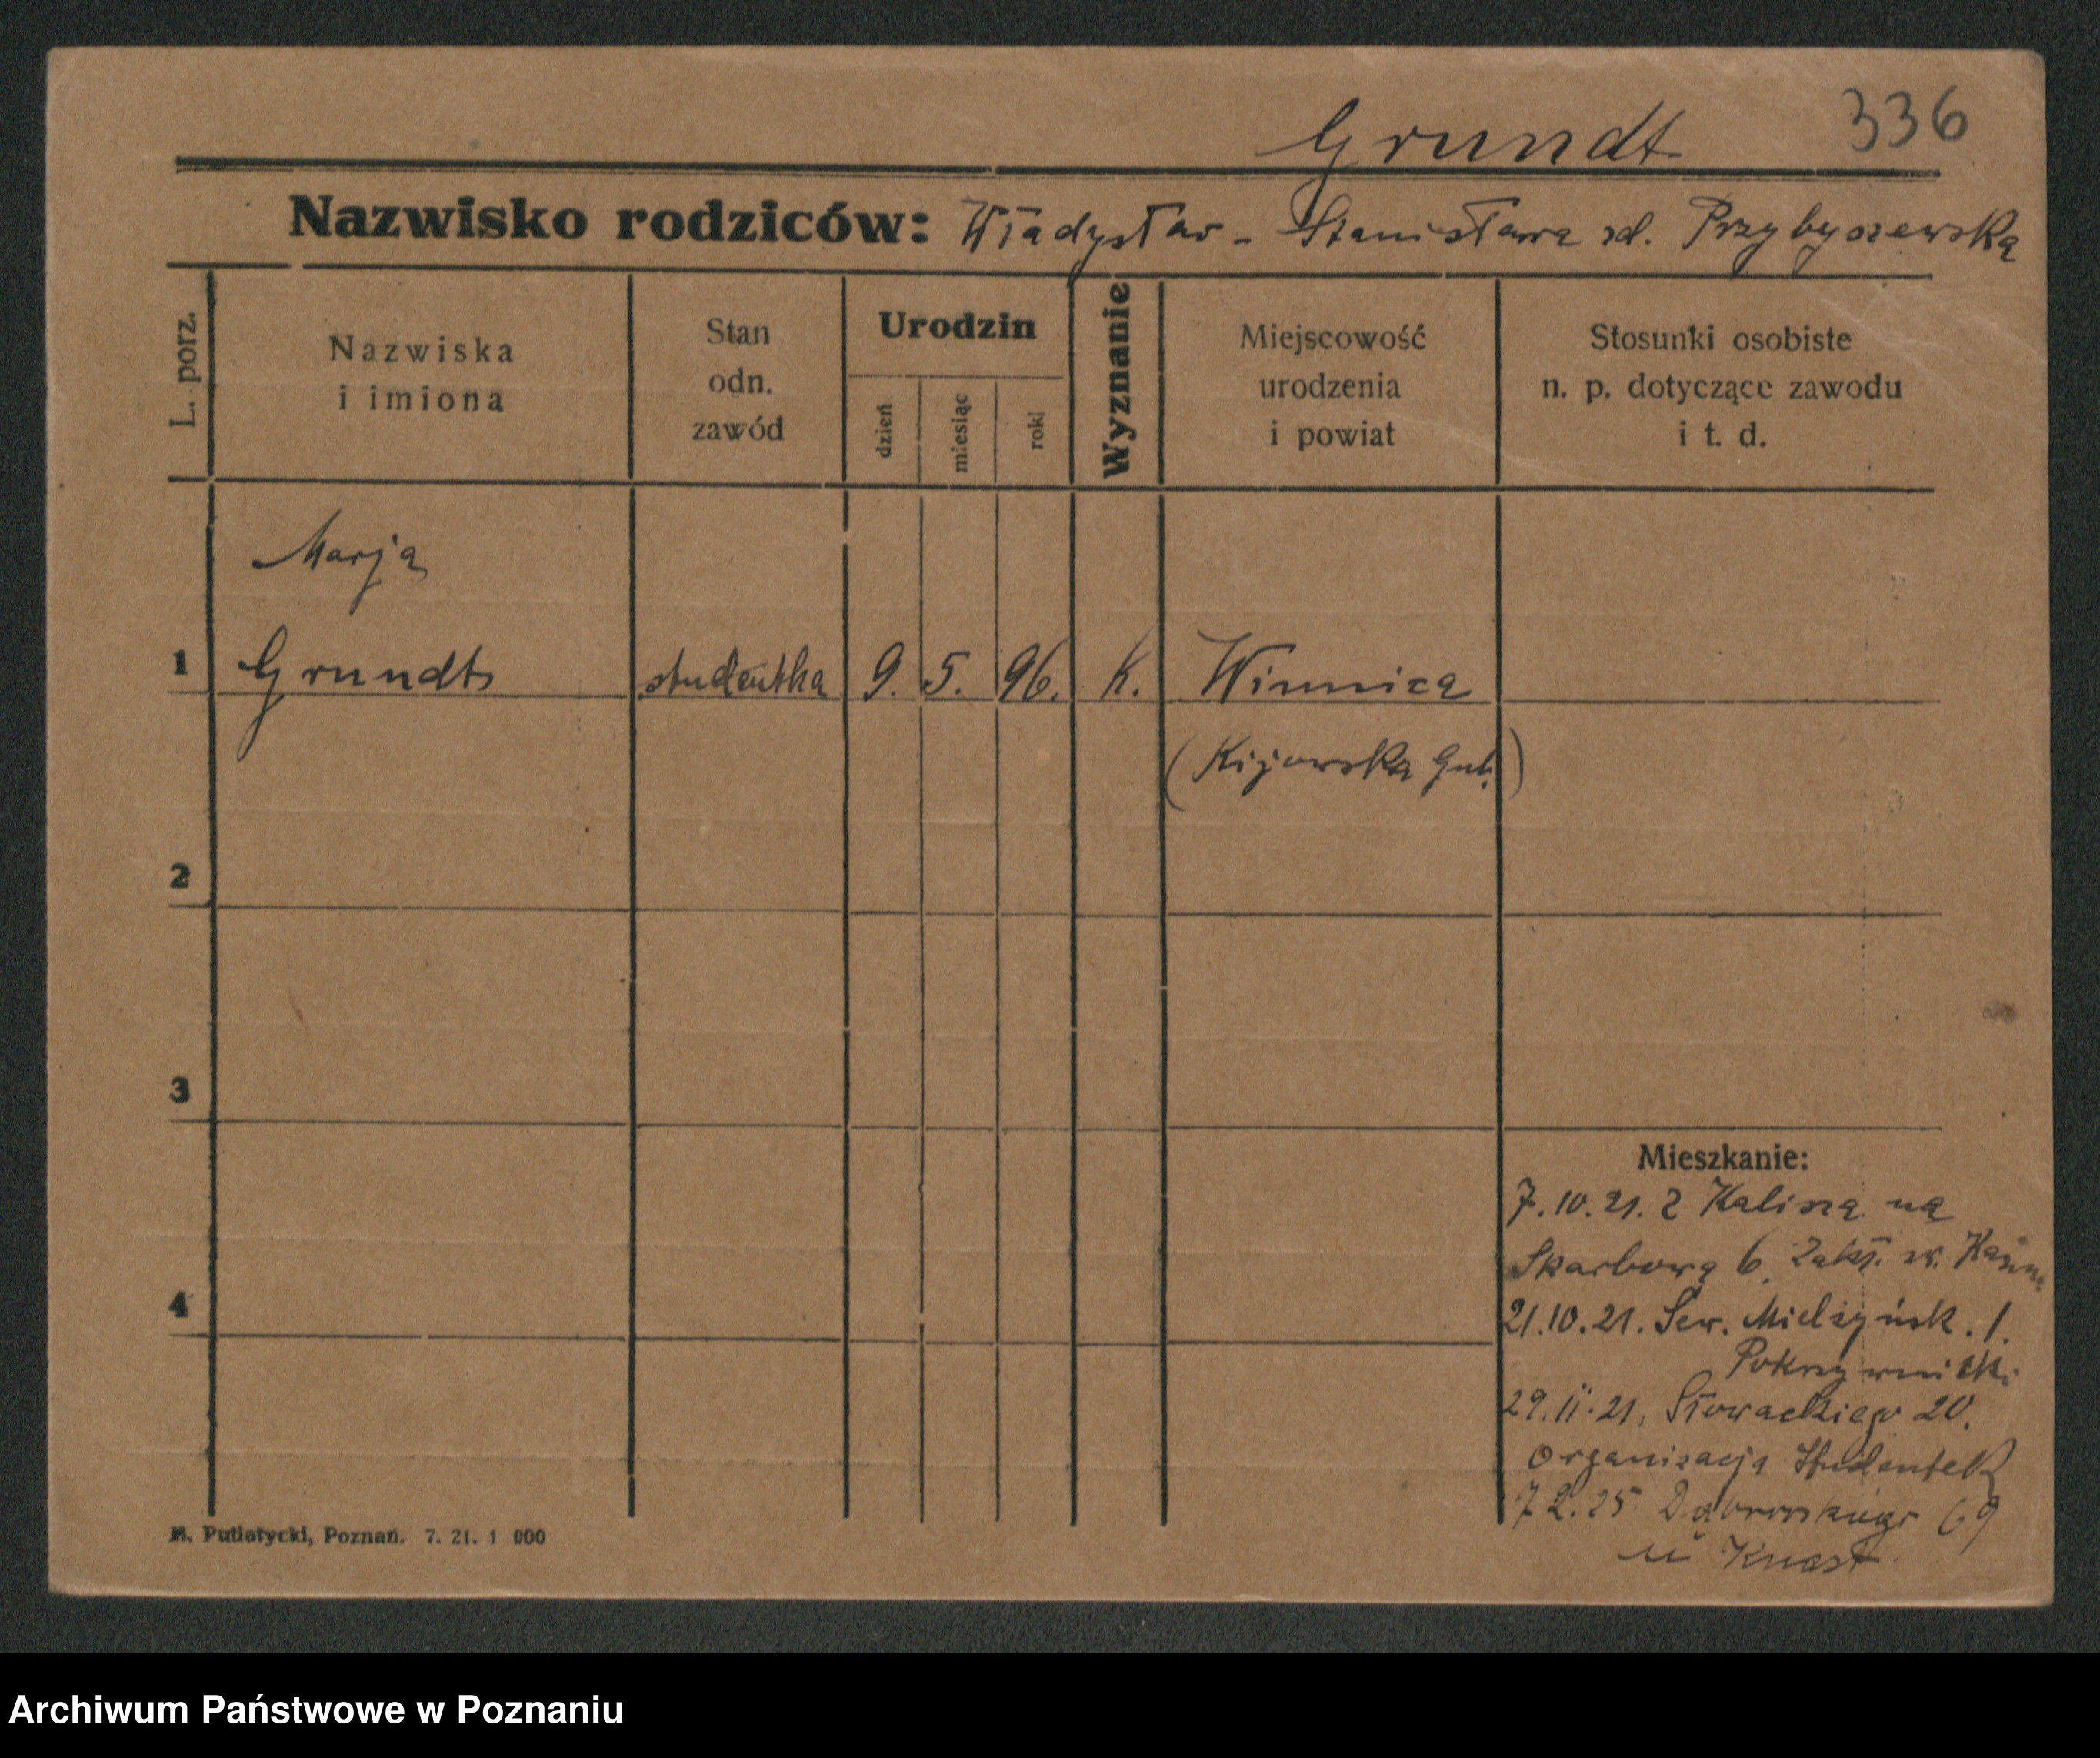 336
Grundt
Nazwisko rodziców: Władysław - Stanisława zd. Przybyszewska
L. porz.
Nazwiska
i imiona
Stan
odn.
zawód
Urodzin
dzień
miesiąc
rok
Wyznanie
Miejscowość
urodzenia
i powiat
Stosunki osobiste
n. p. dotyczące zawodu
i t. d.
Marja
1 Grundt studentka 9. 5. 96. k. Winnica
(Kijowska Gub.)
2
3
4
Mieszkanie:
7.10.21. z Kalisza na
Skarbową 6, Zakł. św. Kazim.
21.10.21. Sew. Mielżyńsk. 1.
Pokrzywnicki
29.11.21, Słowackiego 20.
Organizacja Studentek
7 2.25 Dąbrowskiego 69
u Knast
M. Putiatycki, Poznań. 7. 21. 1 000
Archiwum Państwowe w Poznaniu